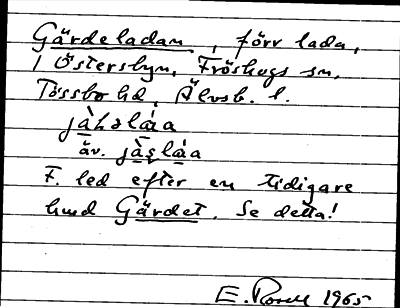 Gärdeladan, förr lada,
i Östersbyn, Fröskogs sn,
Tössbo hd, Älvsb. l.
äv.
F. led efter en tidigare
hmd Gärdet. Se detta!
E. Rosell 1965